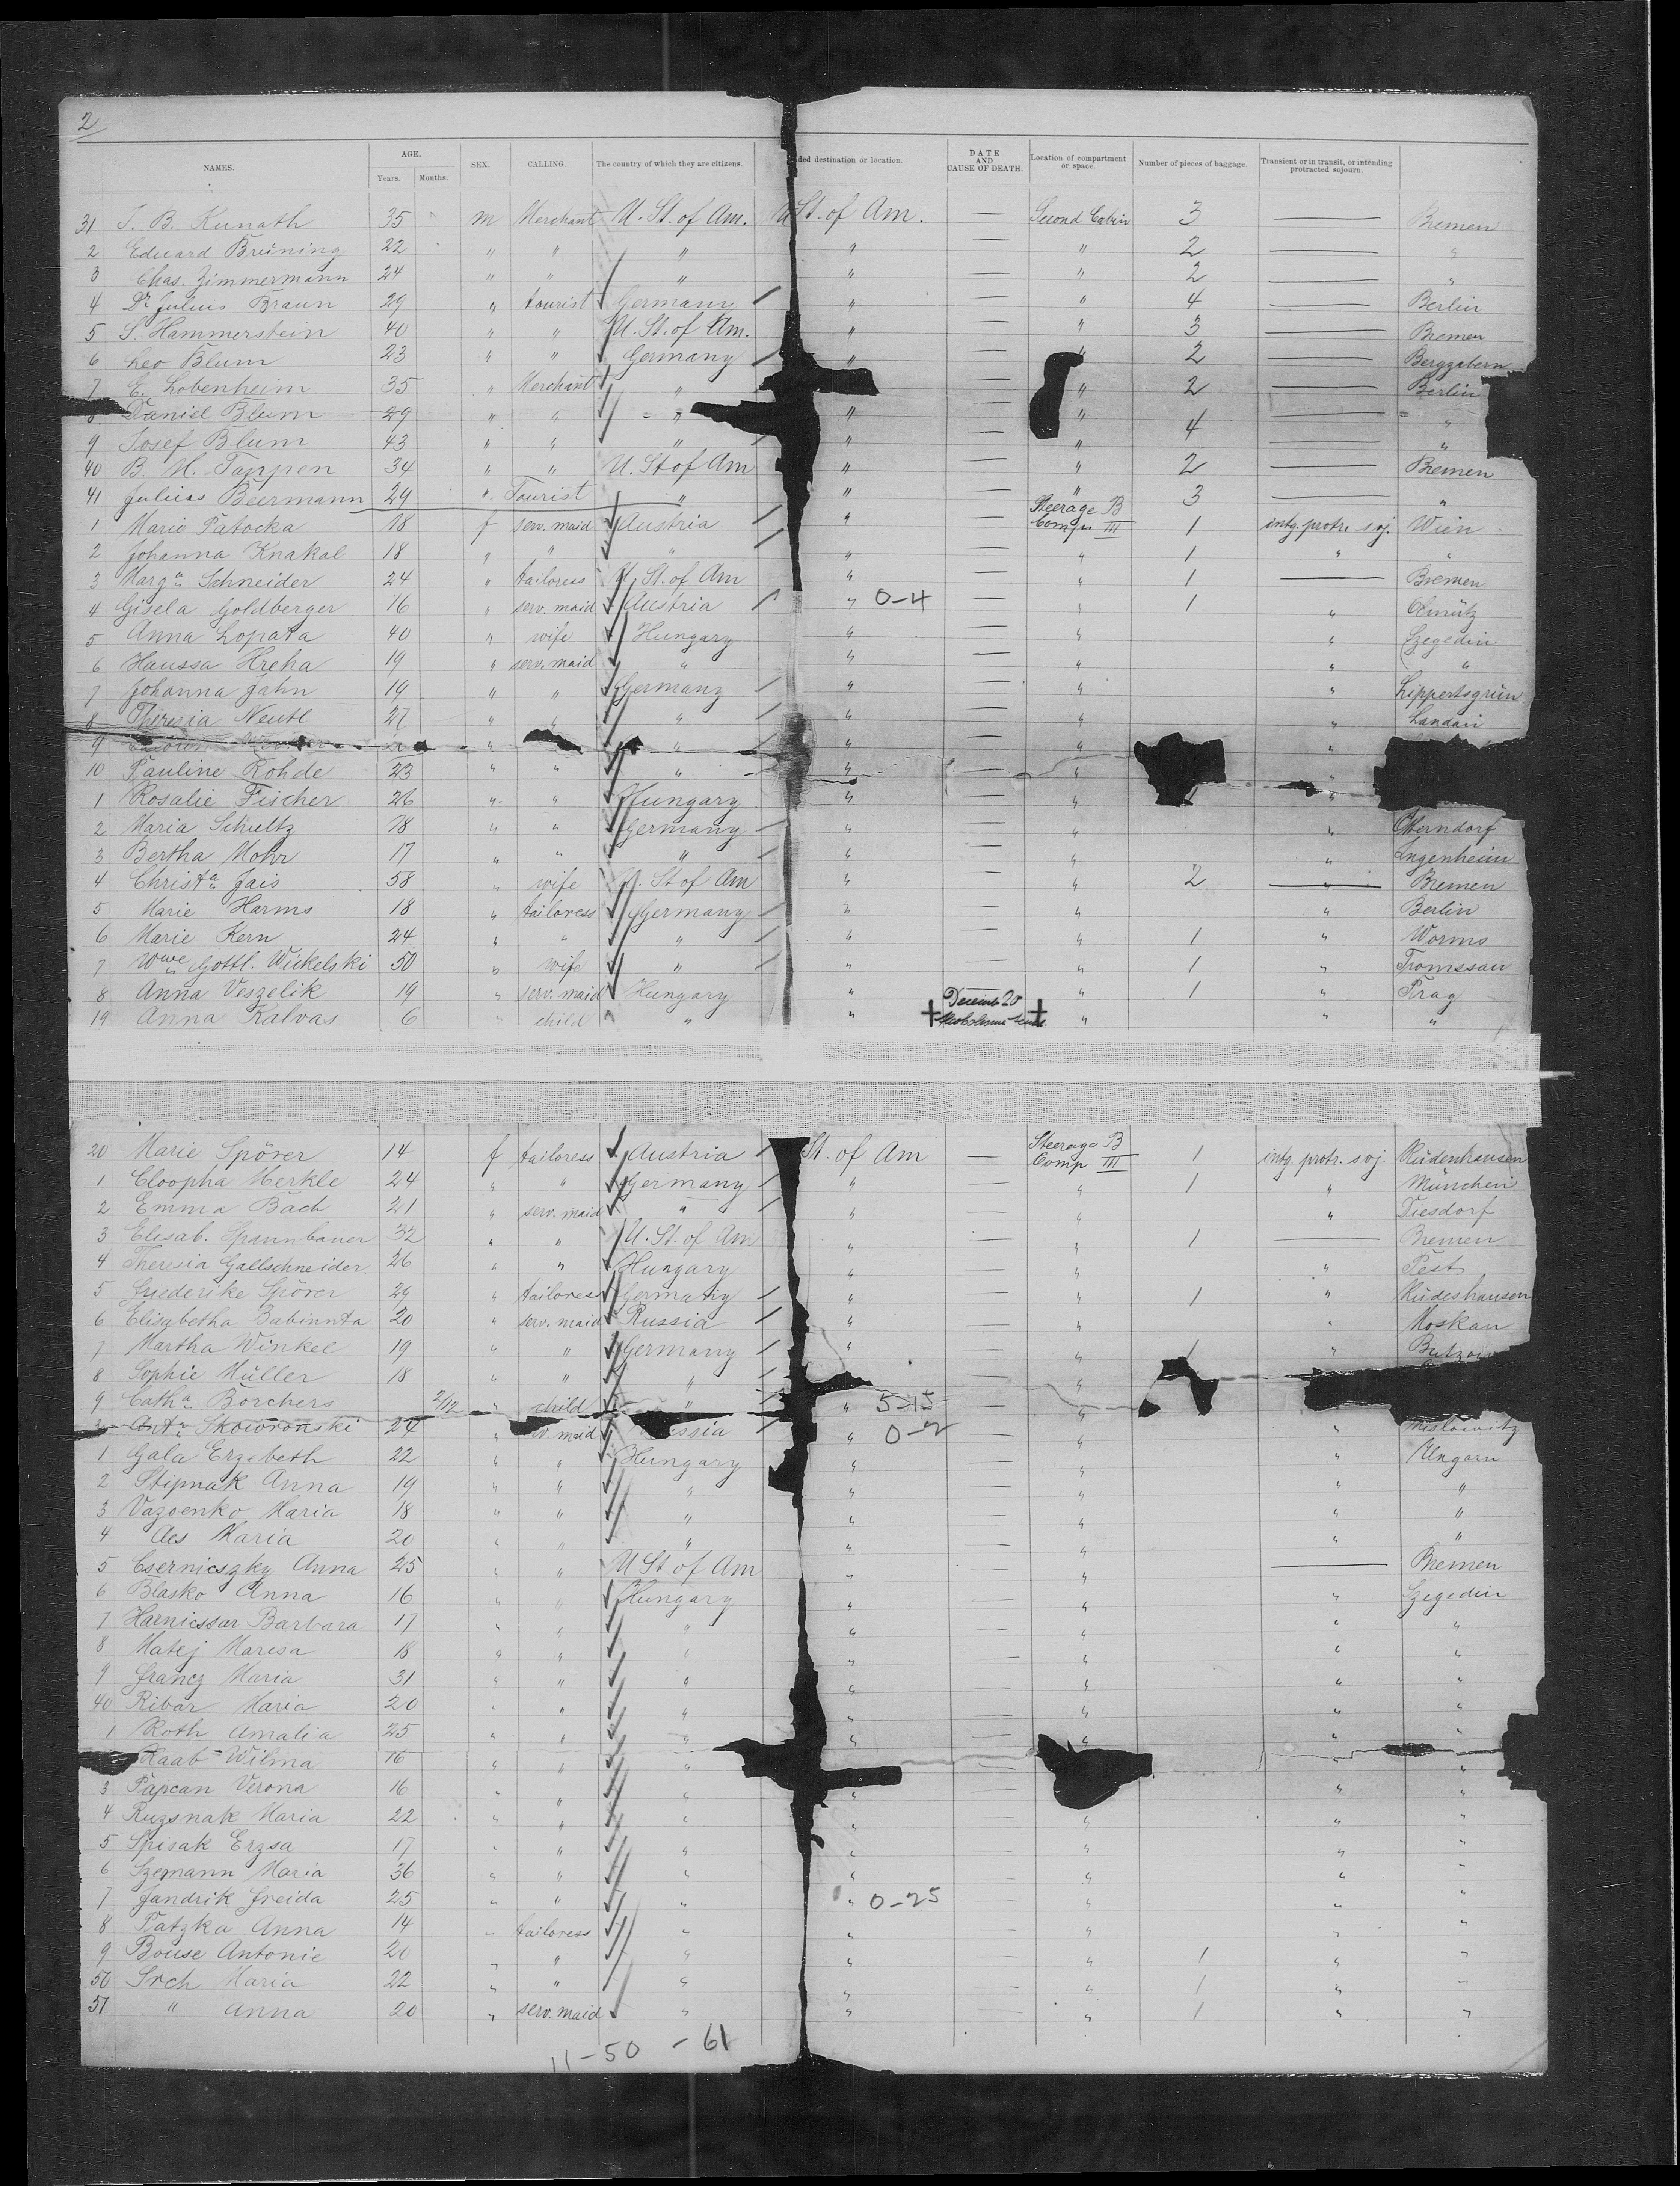 2
NAMES. AGE. Years. Months. SEX. CALLING. The country of which they are citizens. ded destination or location. DATE AND CAUSE OF DEATH. Location of compartment or space. Number of pieces of baggage. Transient or in transit, or intending protracted sojourn.
31 S. B. Kunath 35 m Merchant U. St. of Am. U St. of Am. — Second Cabin 3 — Bremen
2 Eduard Brüning 22 " " " " — " 2 — "
3 Chas. Zimmermann 24 " " " " — " 2 — "
4 Dr Julius Braun 29 " tourist Germany " — " 4 — Berlin
5 S. Hammerstein 40 " " U. St. of Am. " — " 3 — Bremen
6 Leo Blum 23 " " Germany " — " 2 — Bergzabern
7 E. Lobenheim 35 " Merchant " — " 2 — Berlin
8 Daniel Blum 29 " " " " — " 4 — "
9 Josef Blum 43 " " " " — " — "
40 B. M. Tappen 34 " " U. St of Am " — " 2 — Bremen
41 Julius Beermann 29 " Tourist " " — " 3 — "
1 Marie Patocka 18 f serv. maid Austria " — Steerage B Comp. III 1 intg. protr. soj. Wien
2 Johanna Knakal 18 " " " " — " 1 " "
3 Marg a Schneider 24 " tailoress U. St. of Am " — " 1 — Bremen
4 Gisela Goldberger 16 " serv. maid Austria " 0-4 — " 1 " Olmütz
5 Anna Lopata 40 " wife Hungary " — " " Szegedin
6 Haussa Hreha 19 " serv. maid " " — " " "
7 Johanna Jahn 19 " " Germany " — " " Lippertsgrün
8 Theresia Neutl 27 " " " " — " " Landau
9 " " " — " "
10 Pauline Rohde 23 " " " " — " "
1 Rosalie Fischer 26 " " Hungary " — " "
2 Maria Schultz 18 " " Germany " — " " Otterndorf
3 Bertha Mohr 17 " " " " — " " Ingenheim
4 Christ a Jais 58 " wife U. St of Am " — " 2 — Bremen
5 Marie Harms 18 " tailoress Germany " — " " Berlin
6 Marie Kern 24 " " " " — " 1 " Worms
7 Wwe Gottl. Wickelski 50 " wife " " — " 1 " Tromssau
8 Anna Veszelik 19 " serv. maid Hungary " — " 1 " Prag
19 Anna Kalvas 6 " child " " Decemb 20 " " "
20 Marie Spörer 14 f tailoress Austria St. of Am — Steerage B Comp III 1 intg. protr. soj. Rüdenhausen
1 Cloopha Merkle 24 " " Germany " — " 1 " München
2 Emma Bach 21 " serv. maid " " — " " Diesdorf
3 Elisab. Spannbauer 32 " " U. St. of Am " — " 1 — Bremen
4 Theresia Gallschneider 26 " " Hungary " — " " Pest
5 Friederike Spörer 29 " tailoress Germany " — " 1 " Rüdeshausen
6 Elisabetha Babinnta 20 " serv. maid Russia " — " " Moskau
7 Martha Winkel 19 " " Germany " — " 1 "
8 Sophie Müller 18 " " " — "
9 Cath a Borchers 2/12 " child " " 5-15 — "
Ant a Skowronski 24 " maid ssia " 0-2 — " " Mislowitz
1 Gala Erzebeth 22 " " Hungary " — " " Ungarn
2 Stipnak Anna 19 " " " " — " " "
3 Vazoenko Maria 18 " " " " — " " "
4 Aes Maria 20 " " " " — " " "
5 Csernicszky Anna 25 " " U St of Am " — " — Bremen
6 Blasko Anna 16 " " Hungary " — " " Szegedin
7 Harnicsar Barbara 17 " " " " — " " "
8 Matej Maresa 18 " " " " " " "
9 Francz Maria 31 " " " " — " " "
40 Ribar Maria 20 " " " " — " " "
1 Roth Amalia 25 " " " " — " " "
Raab Wilma 16 " " " — " "
3 Papcan Verona 16 " " " " — " "
4 Ruzsnak Maria 22 " " " " — " " "
5 Spisak Erzsa 17 " " " " — " " "
6 Szemann Maria 36 " " " " — " " "
7 Jandrik Freida 25 " " " " 0-25 — " " "
8 Patzka Anna 14 " tailoress " " — " " "
9 Bouse Antonie 20 " " " " — " 1 " "
50 Srch Maria 22 " " " " — " 1 " "
51 " Anna 20 " serv. maid " " — " 1 " "
11-50 -61